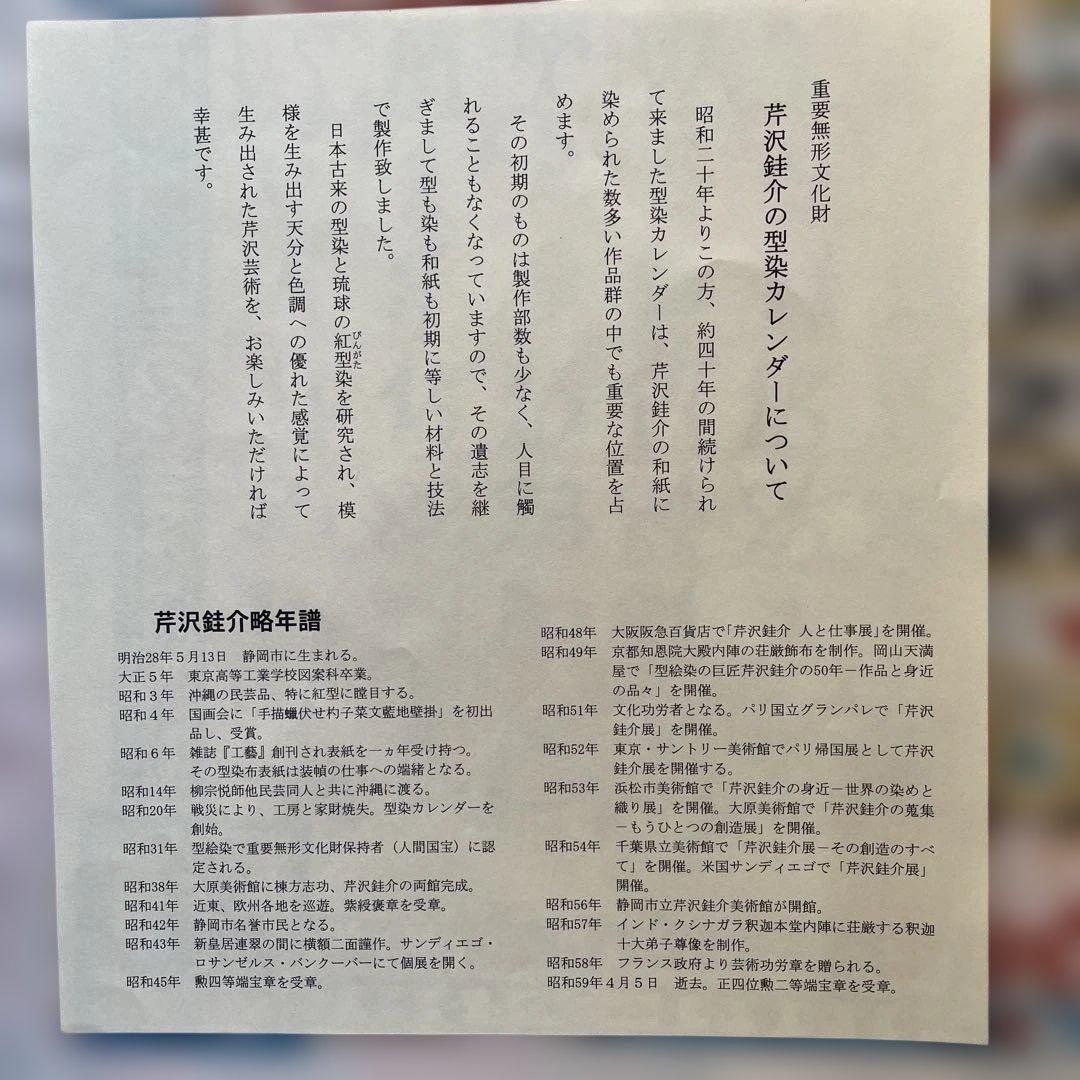 重要無形文化財
芹沢銈介の型染カレンダーについて
昭和二十年よりこの方、約四十年の間続けられ
て来ました型染カレンダーは、芹沢銈介の和紙に
染められた数多い作品群の中でも重要な位置を占
めます。
その初期のものは製作部数も少なく、人目に觸
れることもなくなっていますので、その遺志を継
ぎまして型も染も和紙も初期に等しい材料と技法
で製作致しました。
日本古来の型染と琉球の紅型染を研究され、模
びんがた
様を生み出す天分と色調への優れた感覚によって
生み出された芹沢芸術を、お楽しみいただければ
幸甚です。
芹沢銈介略年譜
明治28年5月13日 静岡市に生まれる。
大正5年 東京高等工業学校図案科卒業。
昭和3年 沖縄の民芸品、特に紅型に瞠目する。
昭和4年 国画会に「手描蠟伏せ杓子菜文藍地壁掛」を初出
品し、受賞。
昭和6年 雑誌『工藝』創刊され表紙を一ヵ年受け持つ。
その型染布表紙は装幀の仕事への端緒となる。
昭和14年 柳宗悦師他民芸同人と共に沖縄に渡る。
昭和20年 戦災により、工房と家財焼失。型染カレンダーを
創始。
昭和31年 型絵染で重要無形文化財保持者（人間国宝）に認
定される。
昭和38年 大原美術館に棟方志功、芹沢銈介の両館完成。
昭和41年 近東、欧州各地を巡遊。紫綬褒章を受章。
昭和42年 静岡市名誉市民となる。
昭和43年 新皇居連翠の間に横額二面謹作。サンディエゴ・
ロサンゼルス・バンクーバーにて個展を開く。
昭和45年 勲四等端宝章を受章。
昭和48年 大阪阪急百貨店で「芹沢銈介 人と仕事展」を開催。
昭和49年 京都知恩院大殿内陣の荘厳飾布を制作。岡山天満
屋で「型絵染の巨匠芹沢銈介の50年－作品と身近
の品々」を開催。
昭和51年 文化功労者となる。パリ国立グランパレで「芹沢
銈介展」を開催。
昭和52年 東京・サントリー美術館でパリ帰国展として芹沢
銈介展を開催する。
昭和53年 浜松市美術館で「芹沢銈介の身近－世界の染めと
織り展」を開催。大原美術館で「芹沢銈介の蒐集
－もうひとつの創造展」を開催。
昭和54年 千葉県立美術館で「芹沢銈介展－その創造のすべ
て」を開催。米国サンディエゴで「芹沢銈介展」
開催。
昭和56年 静岡市立芹沢銈介美術館が開館。
昭和57年 インド・クシナガラ釈迦本堂内陣に荘厳する釈迦
十大弟子尊像を制作。
昭和58年 フランス政府より芸術功労章を贈られる。
昭和59年4月5日 逝去。正四位勲二等端宝章を受章。